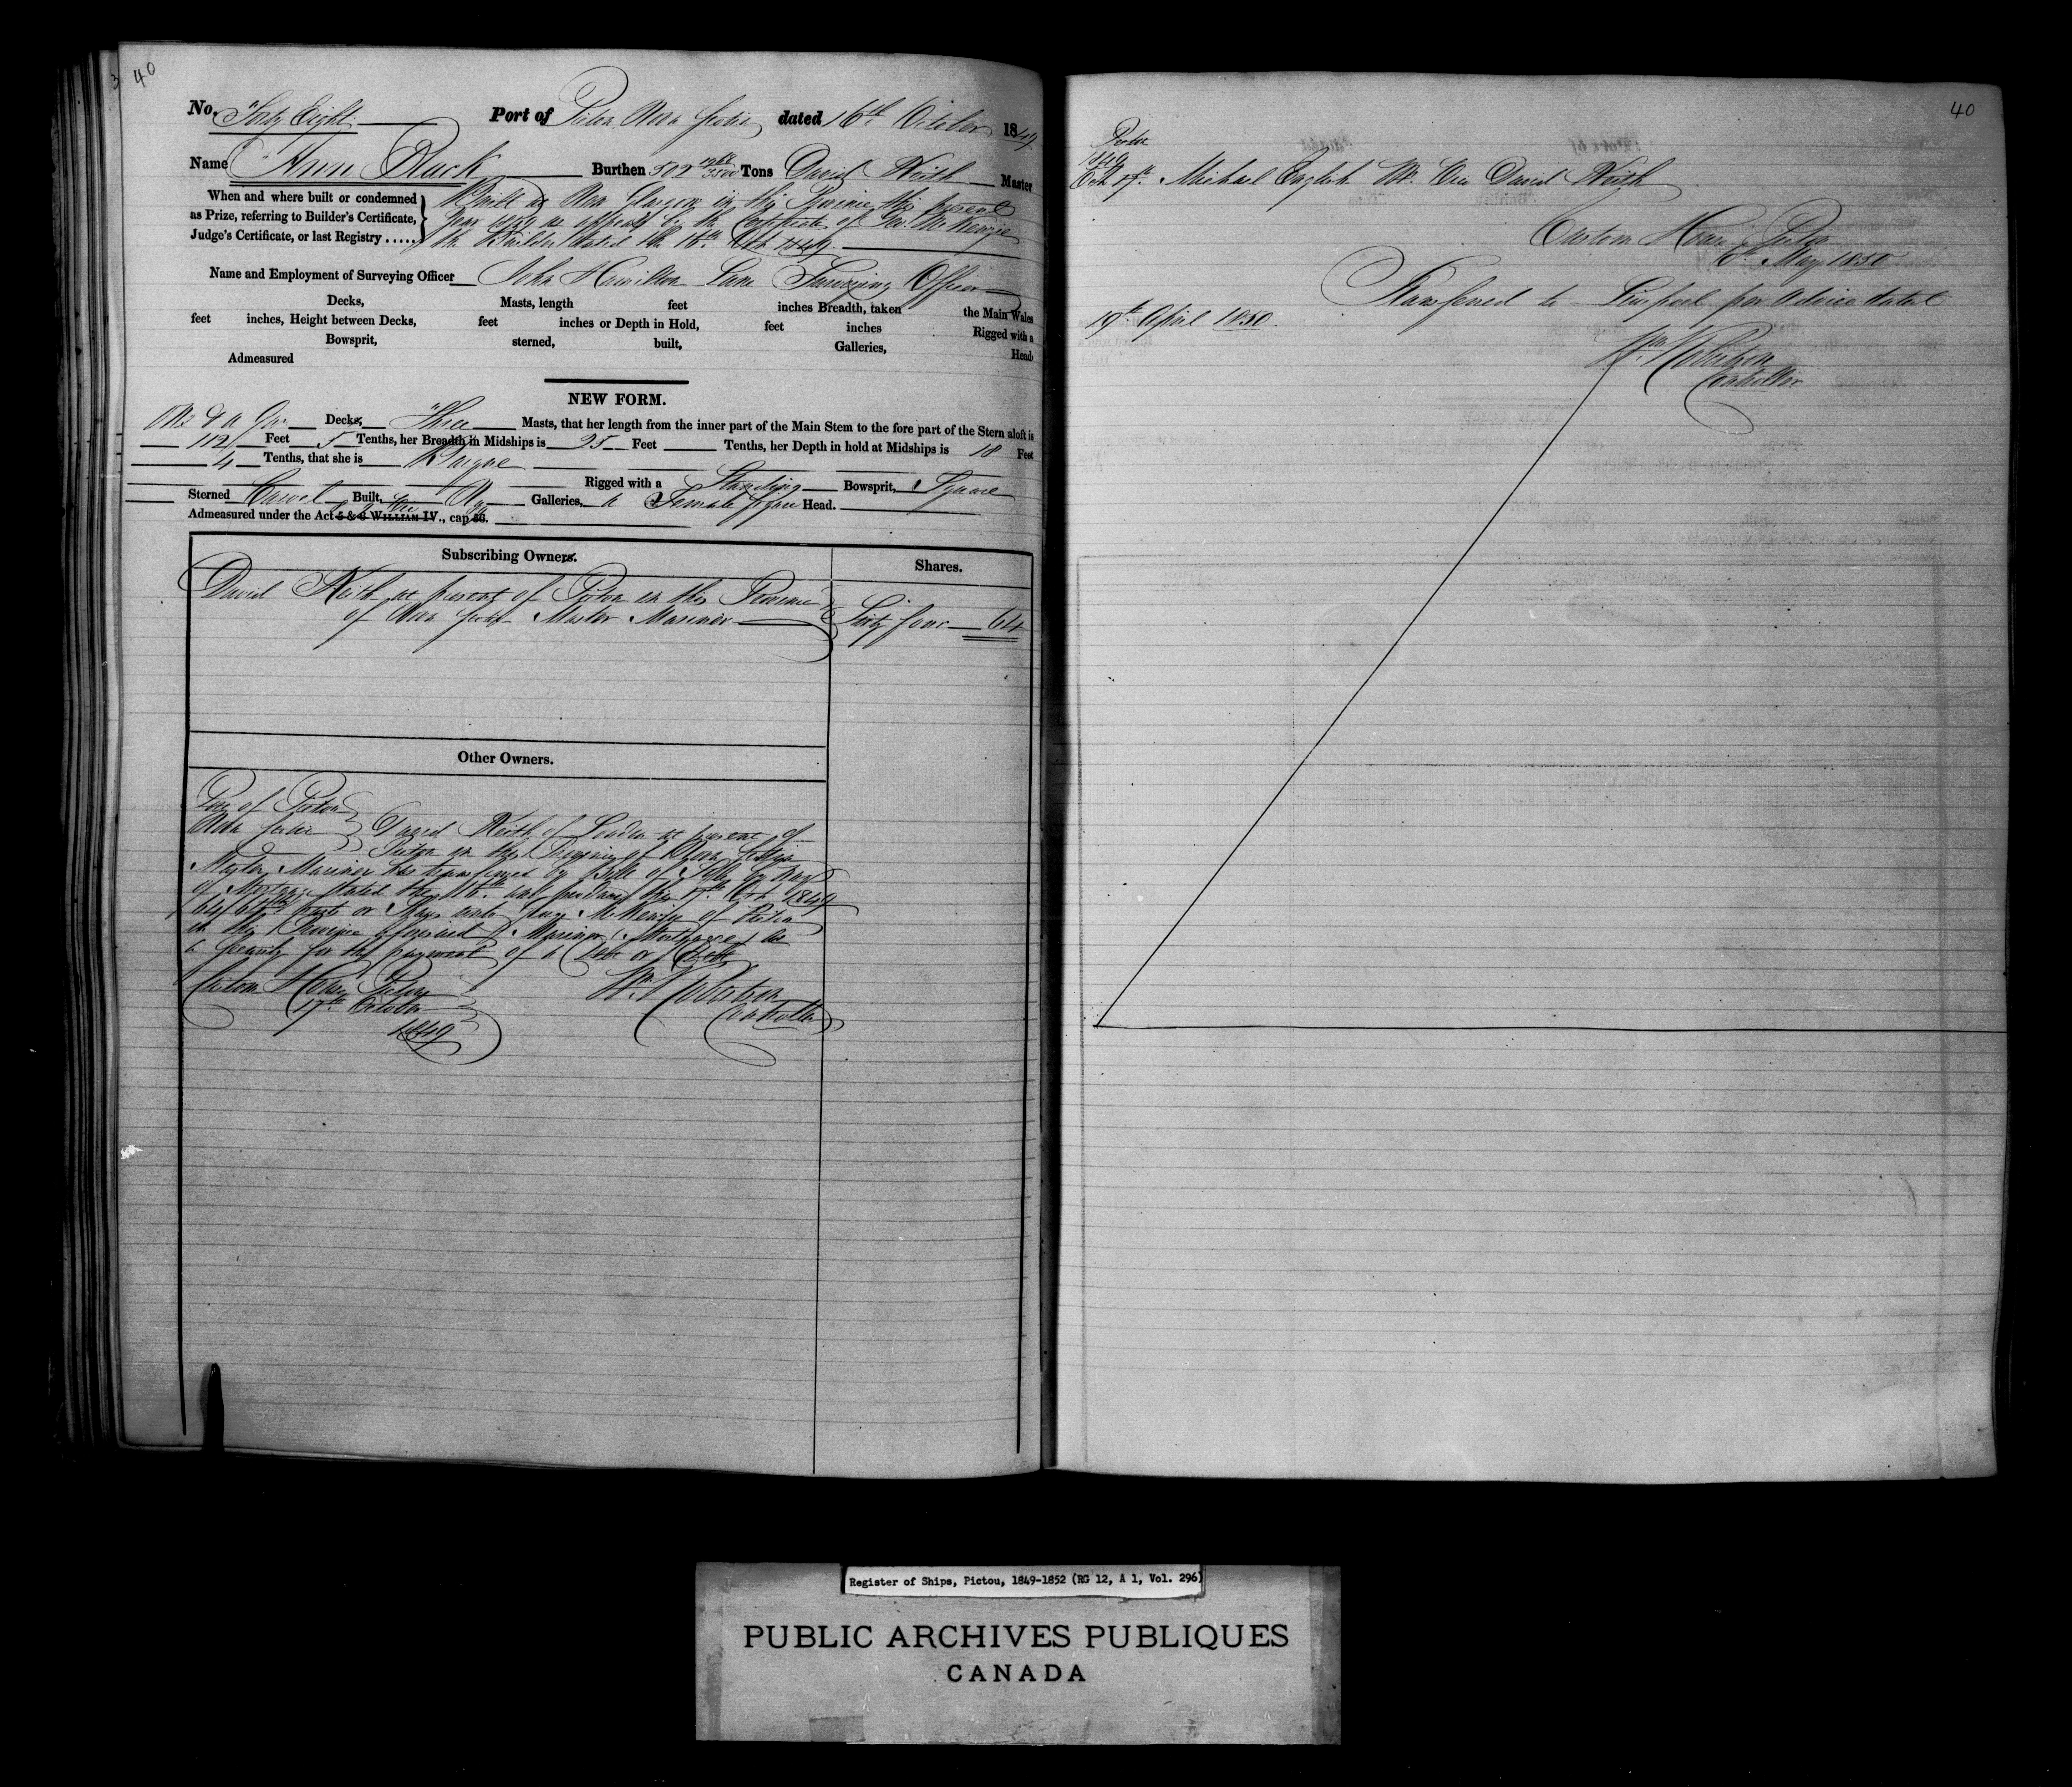 40
No. Forty Eight Port of Pictou Nova Scotia dated 16th October 1849
Name Ann Black Burthen 502 Tons David Keith Master
When and where built or condemned
as Prize, referring to Builder's Certificate,
Judge's Certificate, or last Registry .....
Built at New Glasgow in this Province this present
year 1849 as appears by the Certificate of McKenzie
the Builder dated the 16th Oct 1849.
Name and Employment of Surveying Officer John Hamilton Lane Surveying Officer
Decks, Masts, length feet inches Breadth, taken the Main Wales
feet inches, Height between Decks, feet inches or Depth in Hold, feet inches Rigged with a
Bowsprit, sterned, built, Galleries, Head
Admeasured
NEW FORM.
One & a Decks, Three Masts, that her length from the inner part of the Main Stem to the fore part of the Stern aloft is
112 Feet 5 Tenths, her Breadth in Midships is 25 Feet Tenths, her Depth in hold at Midships is 18 Feet
4 Tenths, that she is Barque
Rigged with a Standing Bowsprit, Square
Sterned Carvel Built, No Galleries, a Female figure Head.
Admeasured under the Act 5 & 6 WILLIAM IV., cap 56.
Subscribing Owners.
Shares.
David Keith at present of Pictou in this Province
of Nova Scotia Master Mariner
Sixty four 64
Other Owners.
Port of Pictou
Nova Scotia
David Keith of London at present of
Pictou in the Province of Nova Scotia
Master Mariner has transferred by Bill of Sale by way
of Mortgage dated the 16th produced this 17th Oct 1849
64/64ths parts or Shares unto McKenzie of Pictou
in the Province aforesaid Mariner (Mortgagee) as
a security for the payment of a Debt or Debts
Custom House Pictou
17th October
1849
Wm Robertson
Controller
40
Pictou
1849
Oct 17th. Michael English Mr. Vice David Keith
Custom House Pictou
May 1850
Transferred to Liverpool per Advice dated
19th April 1850.
Wm Robertson
Controller
Register of Ships, Pictou, 1849-1852 (RG 12, A 1, Vol. 296)
PUBLIC ARCHIVES PUBLIQUES
CANADA